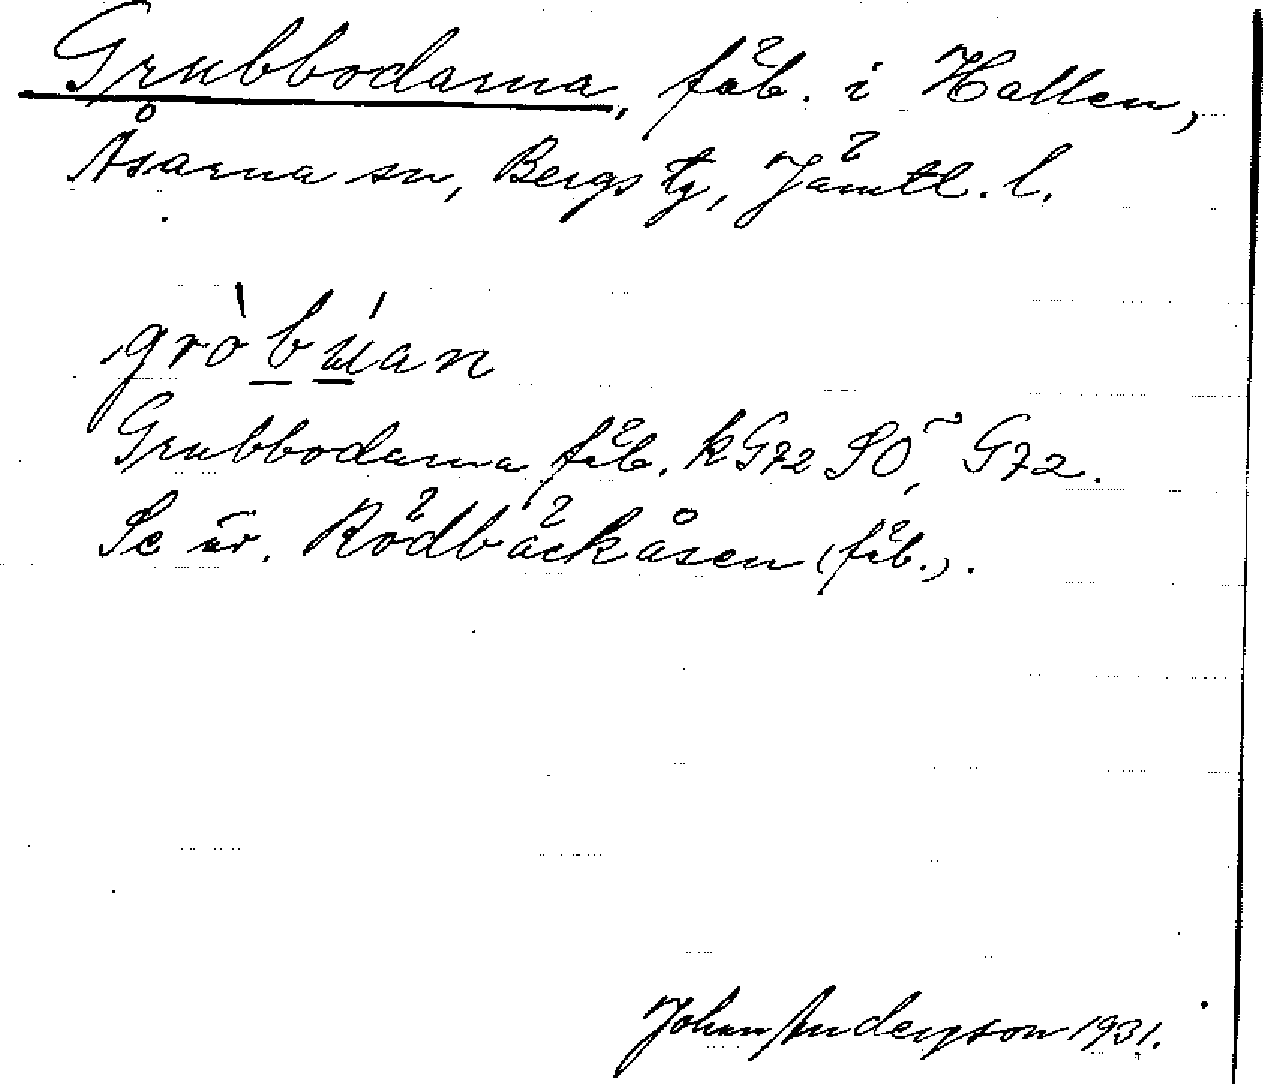 Grubbodarna, fäb. i Hallen,
Åsarna sn, Bergs tg, Jämtl. l.
gròbúan
Grubbodarna fäb. k G72 SO, G72.
Se äv. Rödbäckåsen (fäb.).
Johan Anderson 1931.